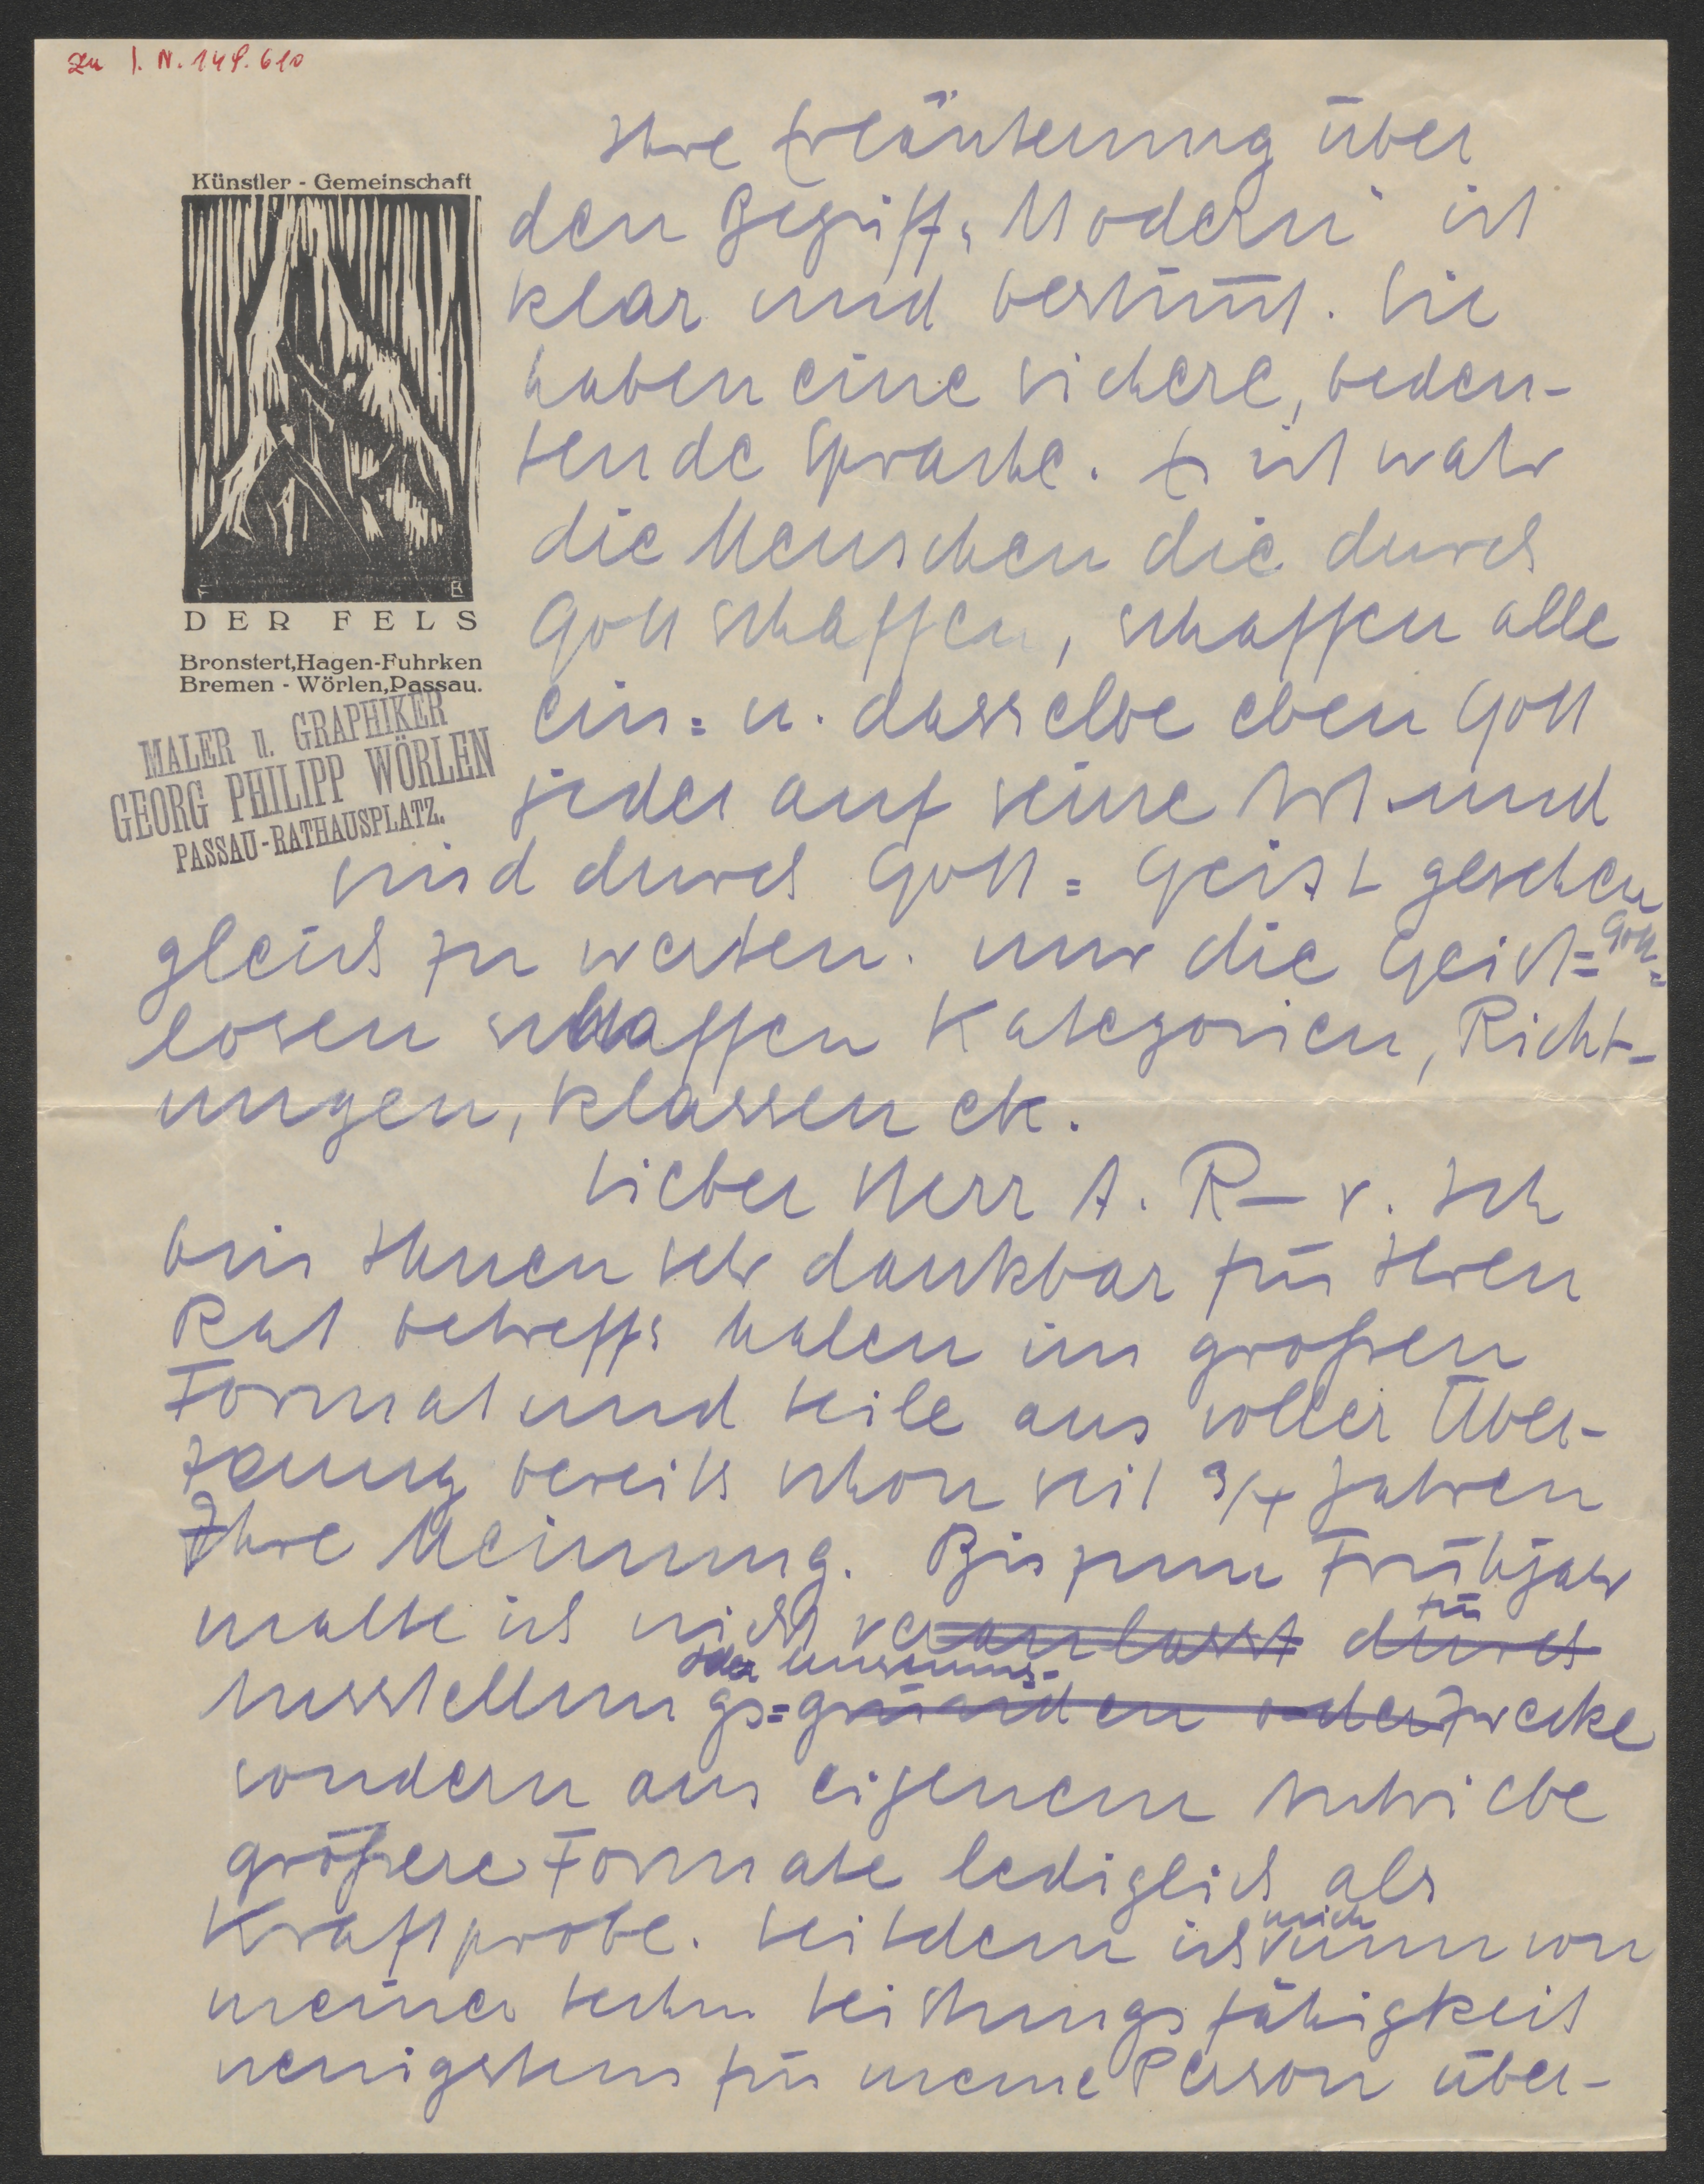 zu I. N. 149.610
Künstler - Gemeinschaft
DER FELS
Bronstert, Hagen-Fuhrken
Bremen - Wörlen, Passau.
MALER u. GRAPHIKER
GEORG PHILIPP WÖRLEN
PASSAU-RATHAUSPLATZ.
Ihre Erläuterung über
den Begriff „Modern" ist
klar und bestimmt. Sie
haben eine sichere, bedeu-
tende Sprache. Es ist wahr
die Menschen die durch
Gott schaffen, schaffen alle
ein= u. dasselbe eben Gott
jeder auf seine Art und
sind durch Gott = Geist gesehen
gleich zu werten. nur die Geist= Gott=
losen schaffen Kategorien, Richt-
ungen, Klassen etc.
Lieber Herr A. R–r. Ich
bin Ihnen sehr dankbar für Ihren
Rat betreffs malen im großen
Format und teile aus voller Über-
zeuung bereits schon seit 3/4 Jahren
Ihre Meinung. Bis zum Frühjahr
malte ich nicht veranlasst durch für
Ausstellungs=gründen oder zwecke
oder
sondern aus eigenem Antriebe
größere Formate lediglich als
Kraftprobe. Seitdem ich mich nun von
meiner techn. Leistungsfähigkeit
wenigstens für meine Person über-